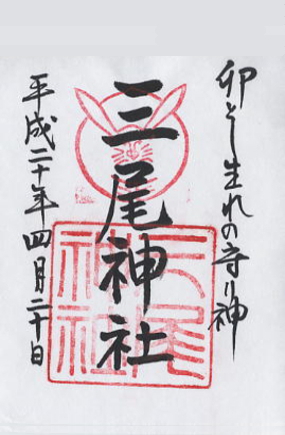 卯とし生れの守り神
三尾神社
平成二十年四月二十日
三尾神社